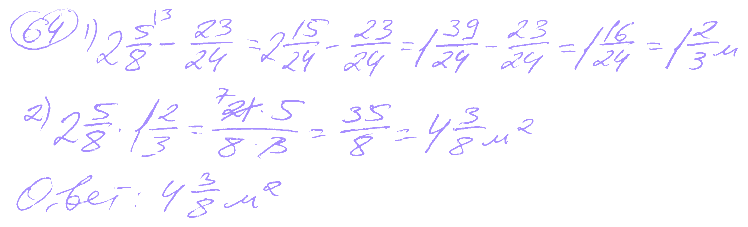 64 1) 2 5/8 ^3 - 23/24 = 2 15/24 - 23/24 = 1 39/24 - 23/24 = 1 16/24 = 1 2/3 м
2) 2 5/8 · 1 2/3 = 21 ^7 · 5 / 8 · 3 = 35/8 = 4 3/8 м²
Ответ: 4 3/8 м²